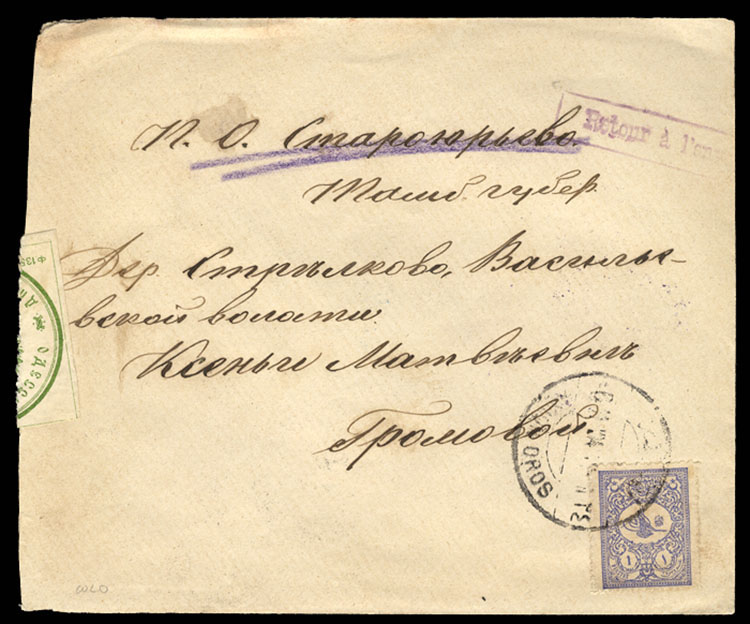 П. О. Староюрьево
Retour à l'en
Тамб. губер.
Дер. Стрѣлково, Василье-
вской волости
Ксеньѣ Матвѣевнѣ
Громовой.
ОДЕСС
Ф 13
SOROS
١ ١
COLO